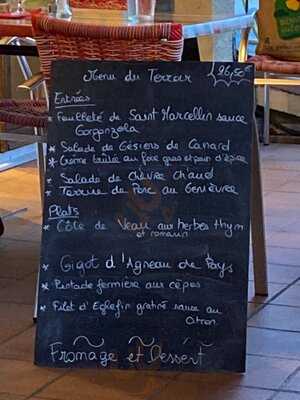 Menu du Terroir 26,50€
Entrées
* Feuilleté de Saint Marcellin sauce
Gorgonzola
* Salade de Gésiers de Canard
* Crème brulée au foie gras et pain d'épice
* Salade de Chèvre Chaud
* Terrine de Porc au Genièvre
Plats
* Côte de Veau aux herbes thym
et romarin
* Gigot d'Agneau de Pays
* Pintade fermière aux cèpes
* Filet d'Eglefin gratiné sauce au
Citron
Fromage et Dessert